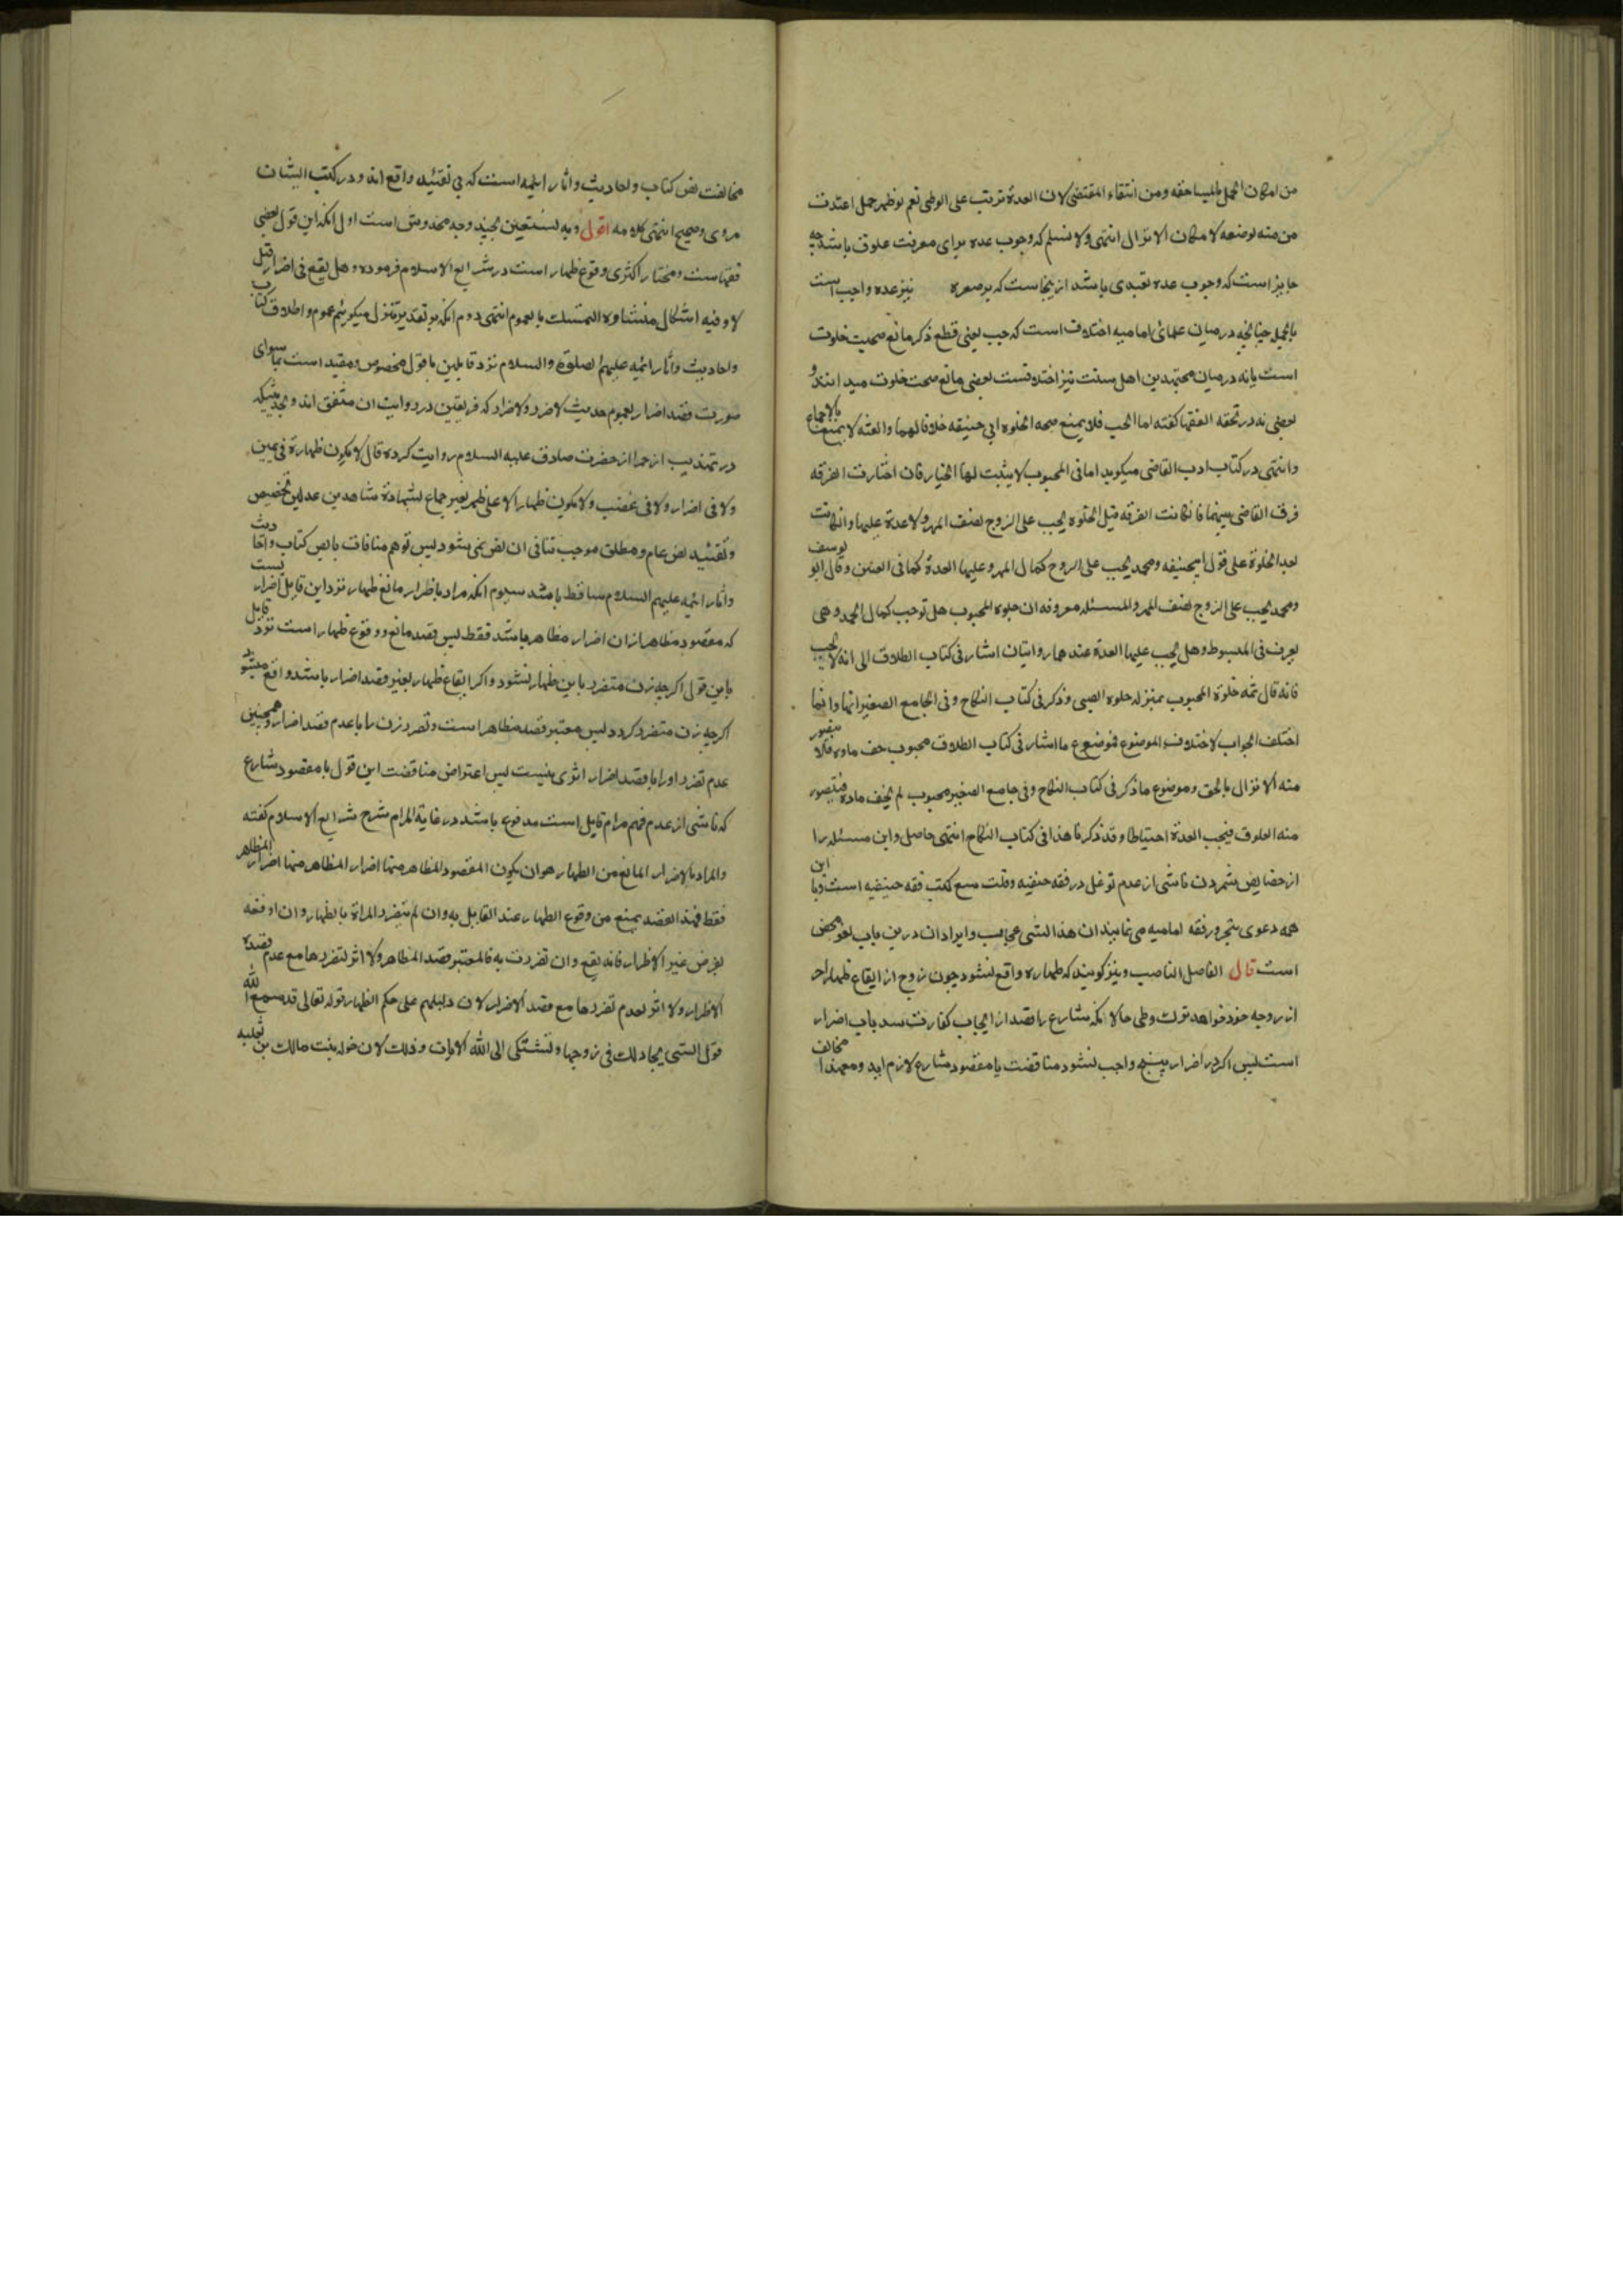 من امکان الحمل بالمساحقه ومن انتفاء المقتضی لان العدة ترتب علی الوطی نعم لو ظهر حمل اعتدت
من منه لوضعه لامکان الانزال انتهی ولا نسلم که وجوب عده برای معرفت علوق باشد چه
جایز است که وجوب عده تعبدی باشد ازینجاست که بر صعره نیز عده واجب است
بالجمله چنانچه در میان علمای امامیه اختلاف است که جب یعنی قطع ذکر مانع صحت خلوت
است یا نه در میان مجتهدین اهل سنت نیز اختلافست بعضی مانع صحت خلوت میدانند و
بعضی نه در تحفه الفقها کفته اما الجب فلا یمنع صحه الخلوه ابی حنیفه خلافا لهما والعنه لا یمنع بالاجماع
وانتهی در کتاب ادب القاضی میکوید اما فی المجبوب لا یثبت لها الخیار فان اختارت الفرقه
فرق القاضی بینهما فان کانت الفرقه قبل الخلوه یجب علی الزوج نصف المهر ولا عدة علیها وان کانت
بعد الخلوة علی قول ابیحنیفه ومحمد یجب علی الزوج کمال المهر وعلیها العدة کما فی العنین وقال ابو یوسف
ومحمد یجب علی الزوج نصف المهر والمسئله معروفه ان خلوه المجبوب هل توجب کمال المهر وهی
یعرف فی المبسوط وهل یجب علیها العدة عندهما روایتان اشار فی کتاب الطلاق الی انه لا یجب
فانه قال ثمه خلوة المجبوب بمنزله خلوه الصبی وذکر فی کتاب النکاح وفی الجامع الصغیر انها وانما
اختلف الجواب لاختلاف الموضوع فموضوع ما اشار فی کتاب الطلاق مجبوب جف ماوه فلا یتصور
منه الانزال بالحق وموضوع ما ذکر فی کتاب النکاح وفی جامع الصغیر مجبوب لم یجف ماده فیتصور
منه العلوق فیجب العدة احتیاطا وقد ذکرنا هذا فی کتاب النکاح انتهی حاصل واین مسئله را
از خصایص شمردن ناشی از عدم توغل در فقه حنفیه وقلت تتبع کتب فقه حنیفیه است وبا این
همه دعوی تبحر در فقه امامیه می نمایند ان هذا لشی عجاب وایراد ان درین باب لغو محض
است قال الفاضل الناصب ونیز کویند که ظهاره واقع نشود چون زوج از ایقاع ظهار
از زوجه خود خواهد ترک وطی حالانکه شارع را قصد از ایجاب کفارت سد باب اضرار
است پس اکر در اضرار هیچ واجب نشود مناقضت با مقصود شارع لازم اید ومعهذا مخالف
مخالفت نص کتاب واحادیث واثار ایمه است که بی تقیید واقع اند ودر کتب ایشان
مروی وصحیح انتهی کلامه اقول وبه نستعین بچند وجه مخدوش است اول انکه این قول بعضی
فقهاست ومختار اکثری وقوع ظهار است در شرایع الاسلام فرموده وهل یقع فی اضرار قیل
لا وفیه اشکال منشاوه التمسک بالعموم انتهی دوم انکه بر تقدیر تنزل میکوییم عموم واطلاق کتاب
واحادیث واثار ائمیه علیهم الصلوة والسلام نزد قایلین با قول مخصوص ومقید است بما سوای
صورت قصد اضرار بعموم حدیث لا ضرر ولا ضرار که فریقین در روایت ان متفق اند وبحدیثیکه
در تهذیب از حمران از حضرت صادق علیه السلام روایت کرده قال لا یکون ظهارة فی یمین
ولا فی اضرار ولا فی غضب ولا یکون ظهارا الا علی طهر بغیر جماع بشهادة شاهدین عدلین تخصیص
وتقیید نص عام ومطلق موجب تنافی ان نص نمی شود پس توهم منافات با نص کتاب واحادیث
واثار ائمه علیهم السلام ساقط باشد سیوم انکه مراد باظرار مانع ظهار نزد این قایل اضراریست
که مقصود مظاهر ازان اضرار مظاهر باشد فقط پس قصد مانع ووقوع ظهار است نزد قایل
باین قول اکرچه زن متضرر باین ظهار نشود واکر ایقاع ظهار بغیر قصد اضرار باشد واقع میشود
اکرچه زن متضرر کردد پس معتبر قصد مظاهر است وتضرر زن را با عدم قصد اضرار وهمچنین
عدم تضرر او را با قصد اضرار اثری نیست پس اعتراض مناقضت این قول با مقصود شارع
که ناشی از عدم فهم مرام قایل است مدفوع باشد در غایة المرام شرح شرایع الاسلام کفته
والمراد بالاضرار المانع من الظهار هو ان یکون المقصود المظاهر منها اضرار المظاهر منها اضرار المظاهر
فقط فهذا القصد یمنع من وقوع الظهار عند القایل به وان لم یتضرر المراة بالظهار وان اوقعه
بغرض غیر الاظرار فانه یقع وان تضررت به فالمعتبر قصد المظاهر ولا اثر لتضررها مع عدم قصده
الاظرار ولا اثر لعدم تضررها مع قصد الاضرار لان دلیلهم علی حکم الظهار قوله تعالی قد سمع الله
قول التی یجادلک فی زوجها وتشتکی الی الله الایات وذلک لان خوله بنت مالک بن ثعلبه